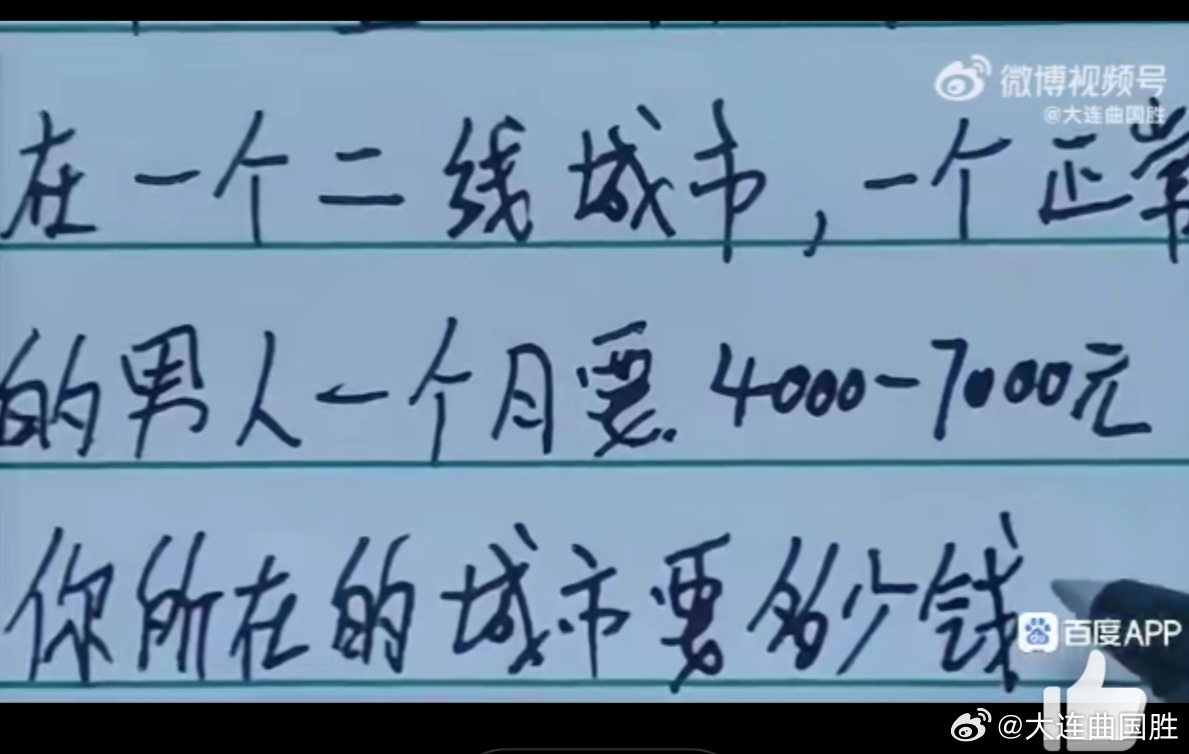 微博视频号
@大连曲国胜
在一个二线城市,一个正常
的男人一个月要4000-7000元
你所在的城市要多少钱
百度APP
@大连曲国胜